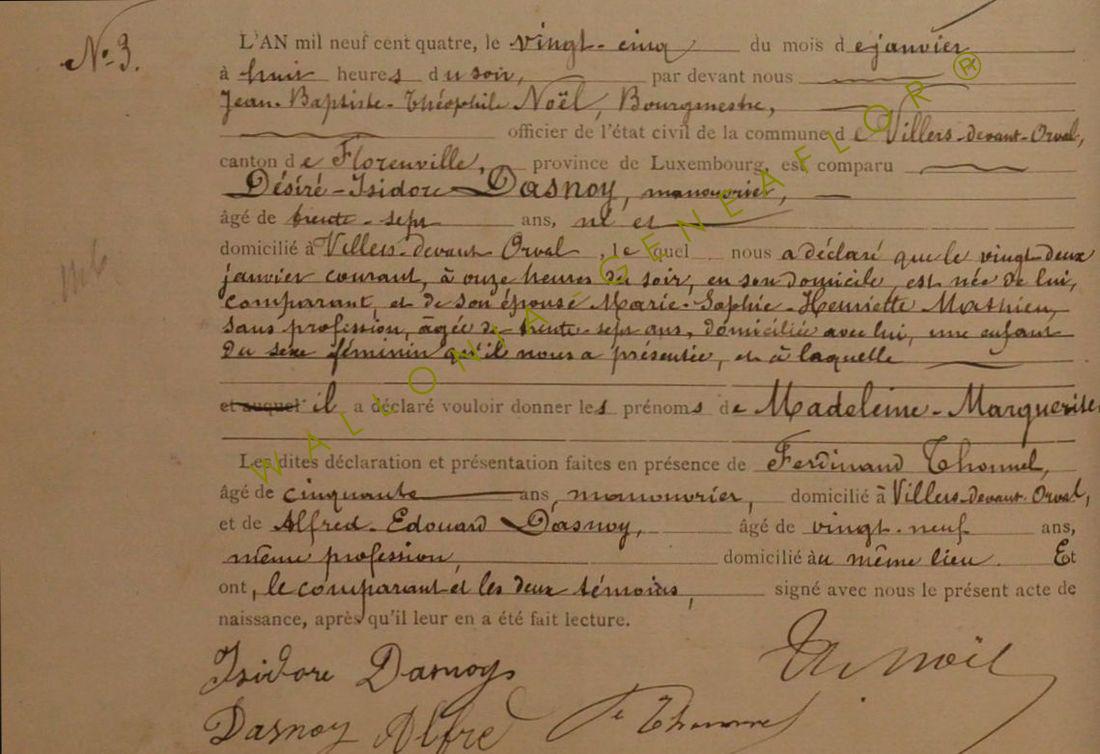 Nº 3.
L'AN mil neuf cent quatre, le vingt-cinq du mois de janvier
à huit heures du soir, par devant nous
Jean-Baptiste-Théophile Noël, Bourgmestre,
officier de l'état civil de la commune de Villers-devant-Orval,
canton de Florenville, province de Luxembourg, est comparu
Désiré-Isidore Dasnoy, manouvrier,
âgé de trente-sept ans, né et
domicilié à Villers-devant Orval, lequel nous a déclaré que le vingt-deux
janvier courant, à onze heures du soir, en son domicile, est née de lui,
comparant, et de son épouse Marie-Sophie-Henriette Mathieu,
sans profession, âgée de trente-sept ans, domiciliée avec lui, une enfant
du sexe féminin qu'il nous a présentée, et à laquelle
et auquel il a déclaré vouloir donner les prénoms de Madeleine-Marguerite
Les dites déclaration et présentation faites en présence de Ferdinand Thonnel,
âgé de cinquante ans, manouvrier, domicilié à Villers-devant-Orval,
et de Alfred-Edouard Dasnoy, âgé de vingt-neuf ans,
même profession, domicilié au même lieu. Et
ont, le comparant et les deux témoins, signé avec nous le présent acte de
naissance, après qu'il leur en a été fait lecture.
Isidore Dasnoy
Th Noël
Dasnoy Alfred
F Thonnel
WALLONIA GENEAFLOR ®